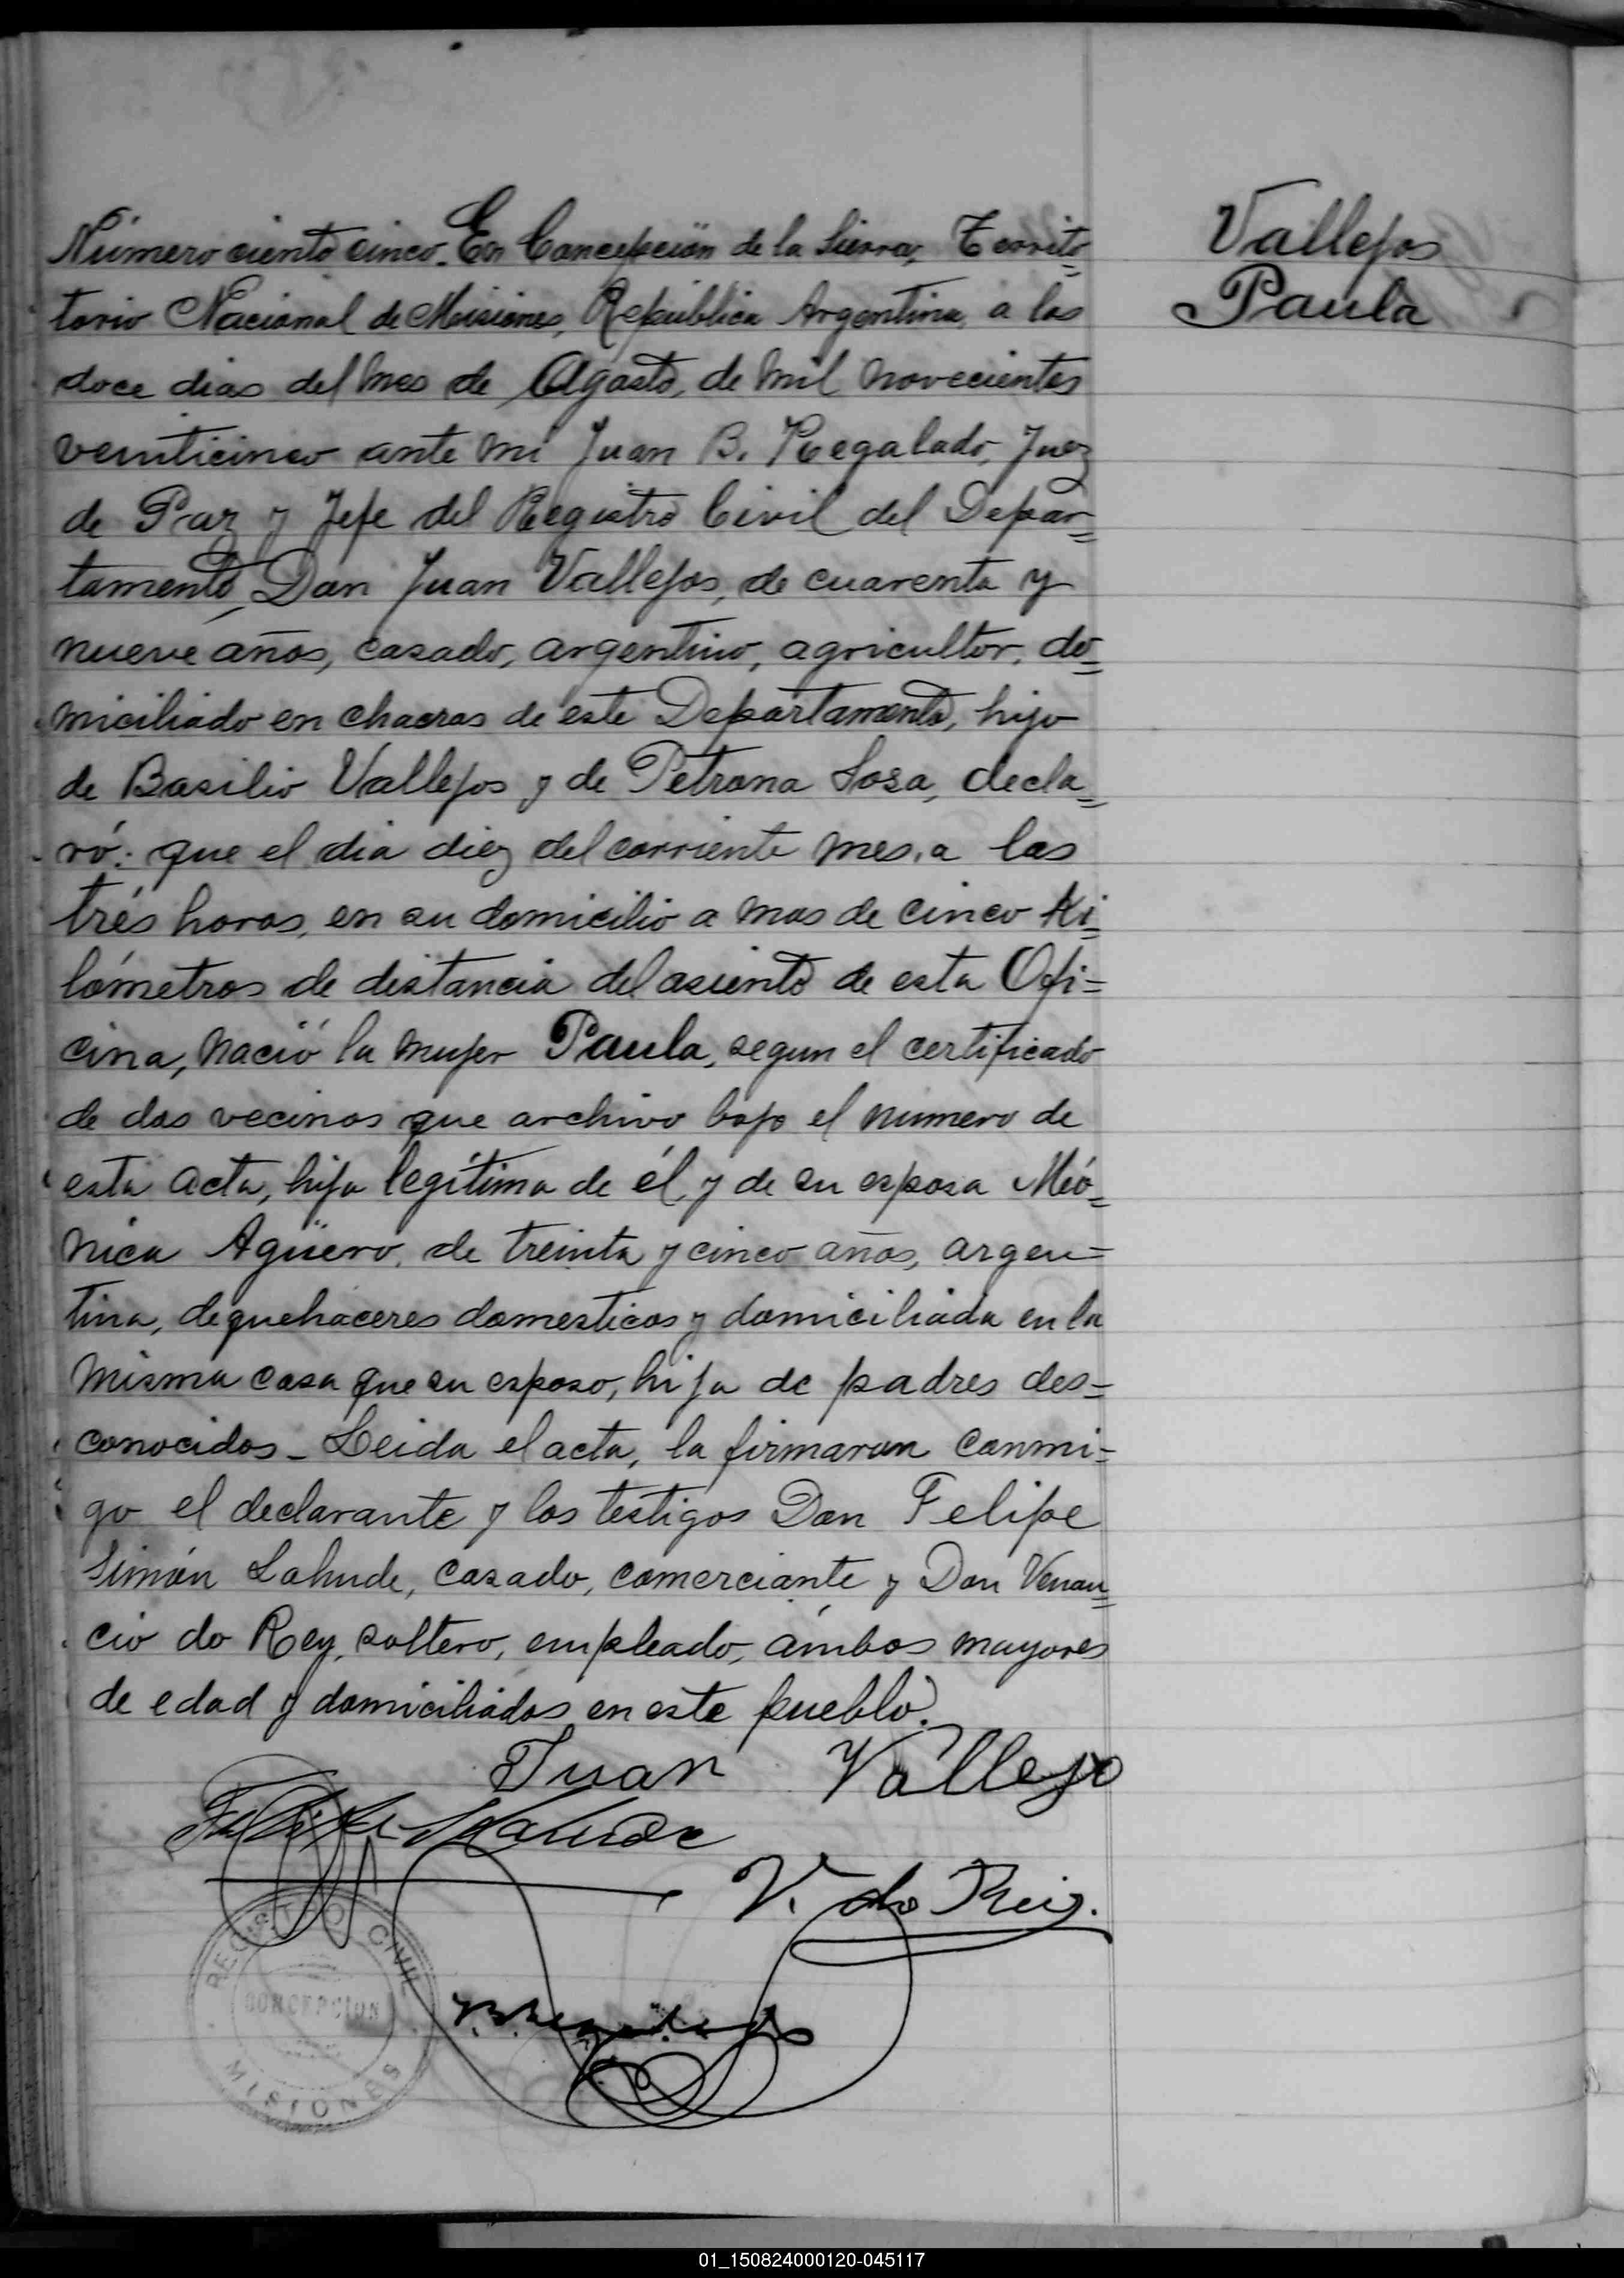 Número ciento cinco. En Concepción de la Sierra, Territo=
torio Nacional de Misiones, República Argentina, a los
doce dias del mes de Agosto, de mil novecientos
veinticinco ante mi Juan B. Regalado, Juez
de Paz y Jefe del Registro Civil del Depar=
tamento, Don Juan Vallejos, de cuarenta y
nueve años, casado, argentino, agricultor, do=
miciliado en chacras de este Departamento, hijo
de Basilio Vallejos y de Petrona Sosa, decla=
ró: que el dia diez del corriente mes, a las
trés horas, en su domicilio a mas de cinco Ki=
lómetros de distancia del asiento de esta Ofi=
cina, nació la mujer Paula, segun el certificado
de dos vecinos que archivo bajo el numero de
esta acta, hija legítima de él y de su esposa Mió=
nica Agüero, de treinta y cinco años, argen=
tina, de quehaceres domesticos y domiciliada en la
misma casa que su esposo, hija de padres des=
conocidos_ Leida el acta, la firmaron conmi=
go el declarante y los testigos Don Felipe
Simón Lahude, casado, comerciante y Don Venan=
cio do Rey, soltero, empleado, ámbos mayores
de edad y domiciliados en este pueblo.
Vallejos
Paula
Juan Vallejo
V. do Reis.
REGISTRO CIVIL
CONCEPCION
MISIONES
01_150824000120-045117